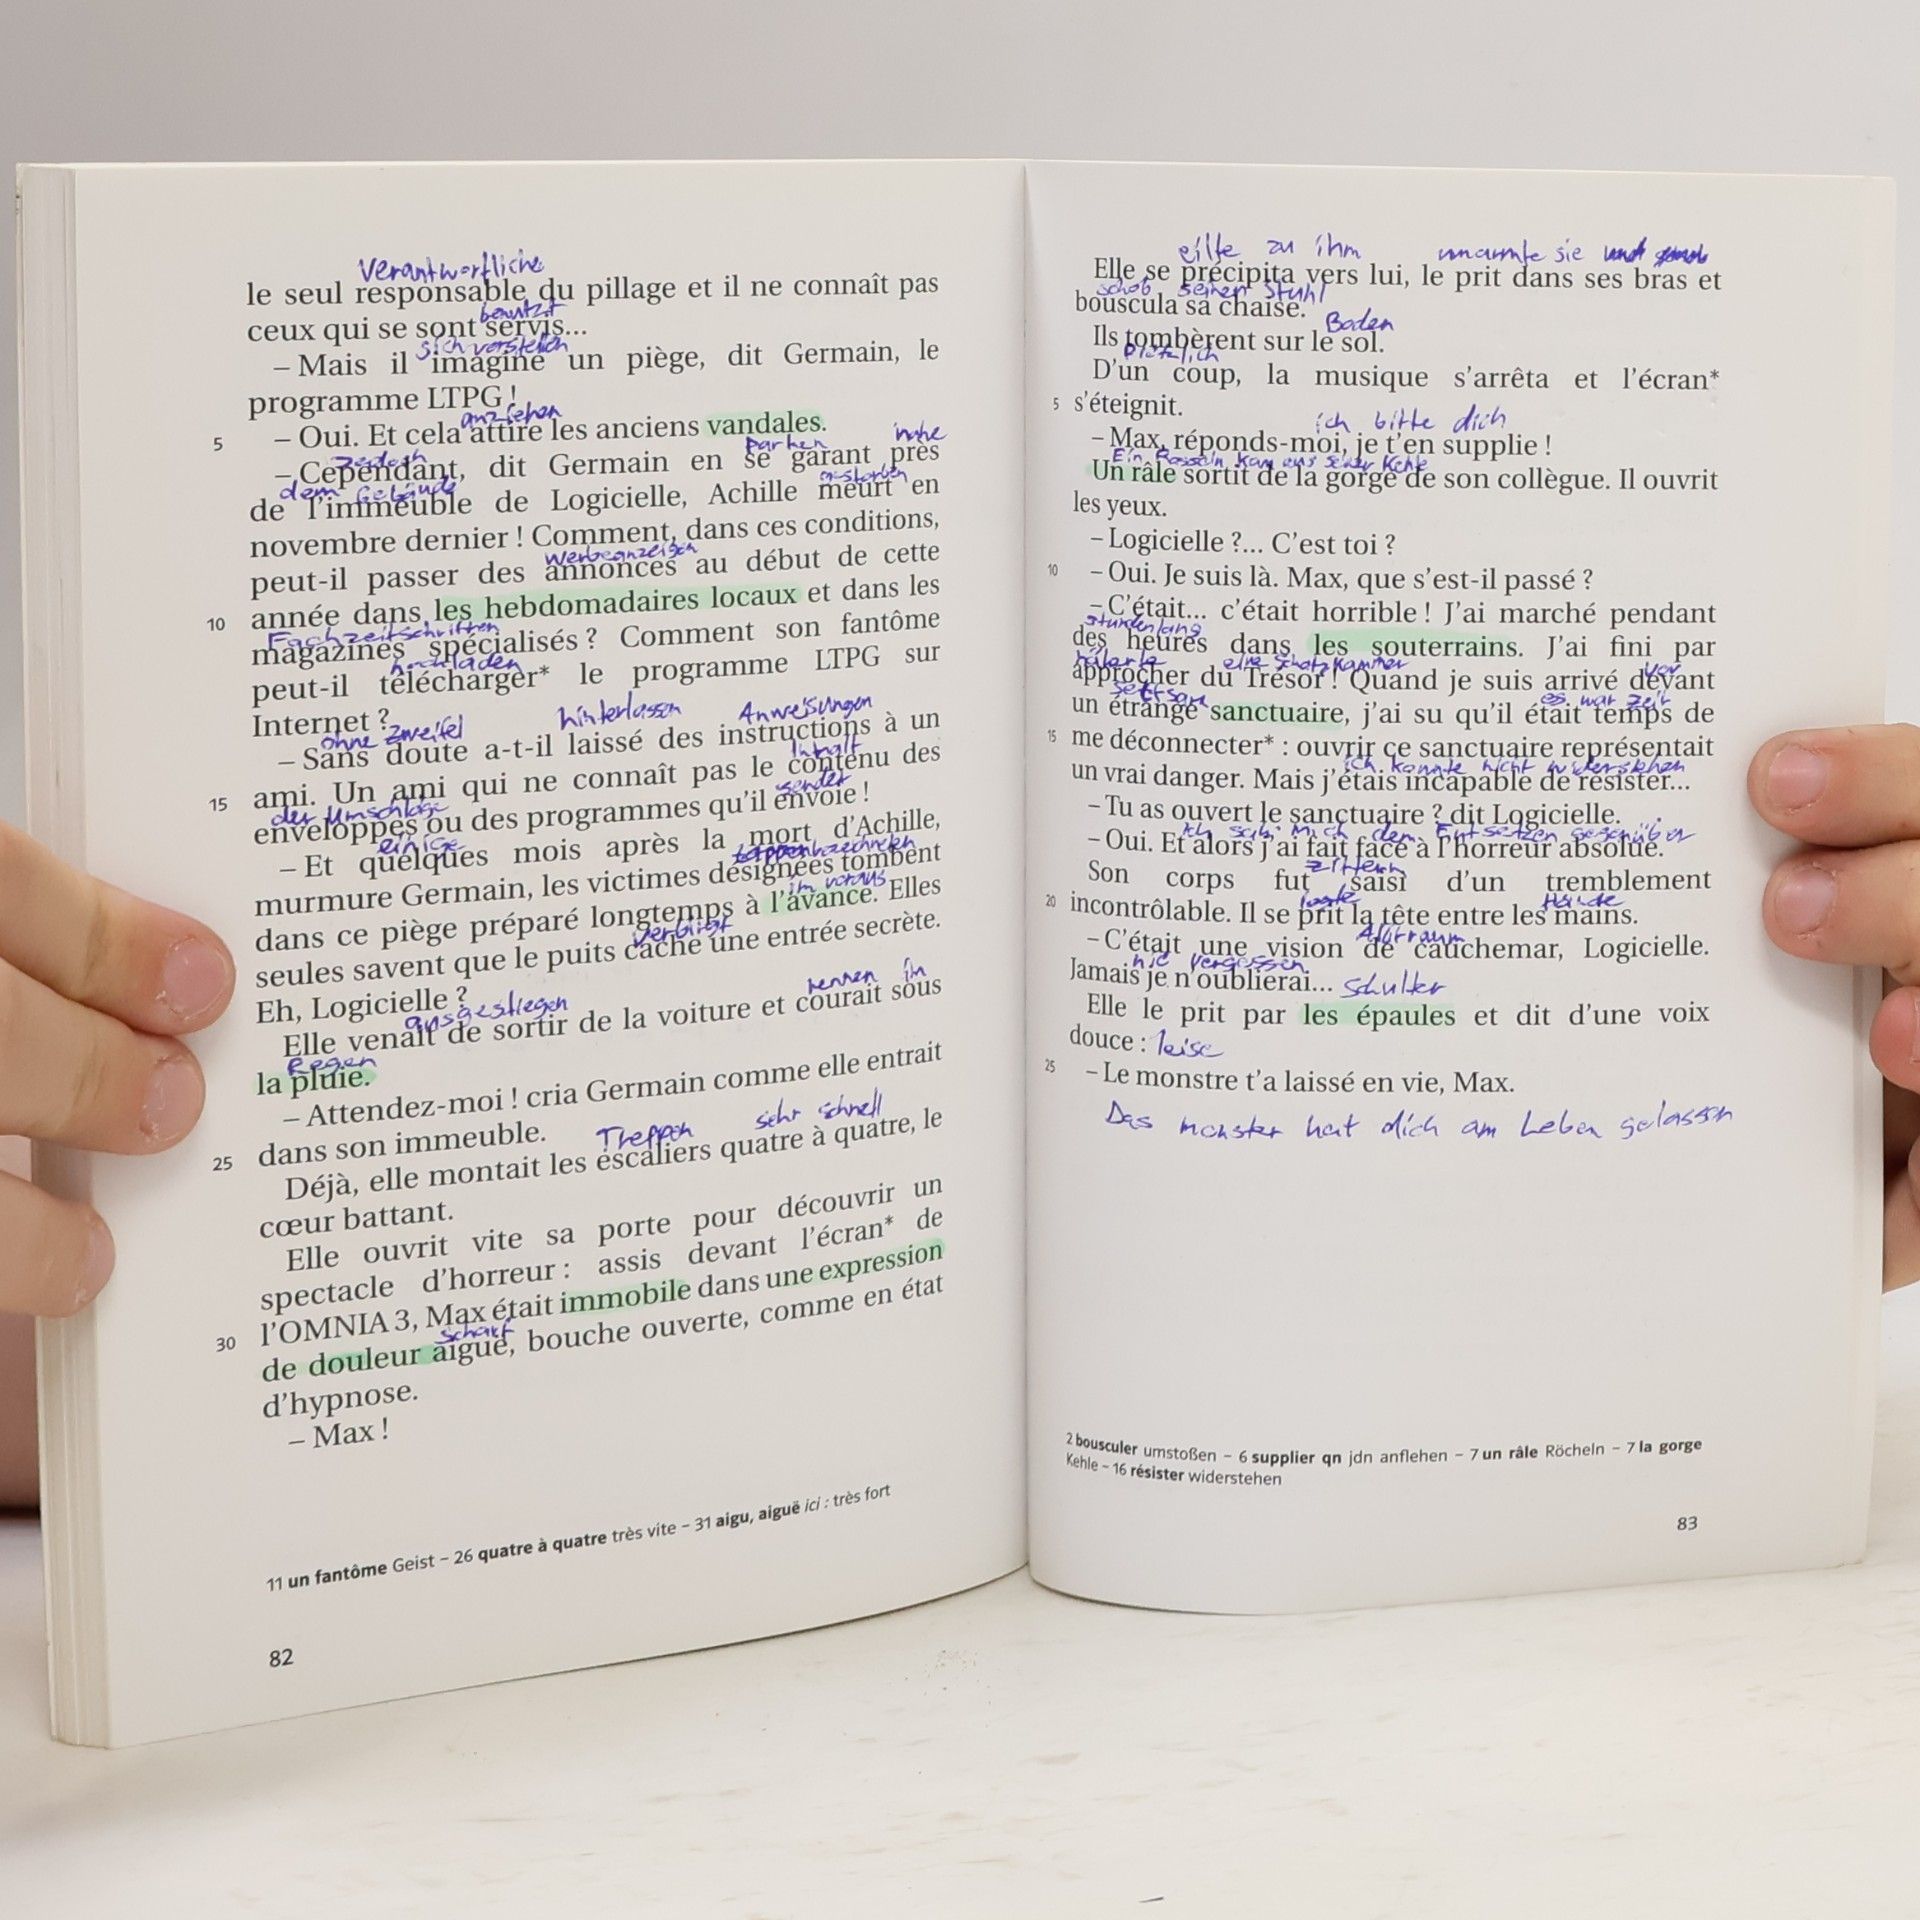 Verantwortliche
le seul responsable du pillage et il ne connaît pas
benutzt
ceux qui se sont servis...
sich vorstellen
– Mais il imagine un piège, dit Germain, le
programme LTPG !
anziehen
5 – Oui. Et cela attire les anciens vandales.
parken nahe
– Cependant, dit Germain en se garant près
dem Gebäude gestorben
de l'immeuble de Logicielle, Achille meurt en
novembre dernier ! Comment, dans ces conditions,
Werbeanzeigen
peut-il passer des annonces au début de cette
10 année dans les hebdomadaires locaux et dans les
Fachzeitschriften
magazines spécialisés ? Comment son fantôme
hochladen
peut-il télécharger* le programme LTPG sur
Internet ?
ohne zweifel hinterlassen Anweisungen
– Sans doute a-t-il laissé des instructions à un
Inhalt
15 ami. Un ami qui ne connaît pas le contenu des
der Umschläge sender
enveloppes ou des programmes qu'il envoie !
einige
– Et quelques mois après la mort d'Achille,
murmure Germain, les victimes désignées tombent
im voraus
dans ce piège préparé longtemps à l'avance. Elles
verbirgt
seules savent que le puits cache une entrée secrète.
Eh, Logicielle ?
ausgestiegen rennen im
Elle venait de sortir de la voiture et courait sous
Regen
la pluie.
– Attendez-moi ! cria Germain comme elle entrait
25 dans son immeuble.
Treppen sehr schnell
Déjà, elle montait les escaliers quatre à quatre, le
cœur battant.
Elle ouvrit vite sa porte pour découvrir un
spectacle d'horreur : assis devant l'écran* de
30 l'OMNIA 3, Max était immobile dans une expression
scharf
de douleur aiguë, bouche ouverte, comme en état
d'hypnose.
– Max !
11 un fantôme Geist – 26 quatre à quatre très vite – 31 aigu, aiguë ici : très fort
82
eilte zu ihm umarmte sie
Elle se précipita vers lui, le prit dans ses bras et
schob seinen Stuhl
bouscula sa chaise.
Boden
Ils tombèrent sur le sol.
plötzlich
D'un coup, la musique s'arrêta et l'écran*
5 s'éteignit.
ich bitte dich
– Max, réponds-moi, je t'en supplie !
Ein Rasseln kam aus seiner Kehle
Un râle sortit de la gorge de son collègue. Il ouvrit
les yeux.
– Logicielle ?... C'est toi ?
10 – Oui. Je suis là. Max, que s'est-il passé ?
– C'était... c'était horrible ! J'ai marché pendant
stundenlang
des heures dans les souterrains. J'ai fini par
eine Schatzkammer vor
approcher du Trésor ! Quand je suis arrivé devant
seltsam es war zeit
un étrange sanctuaire, j'ai su qu'il était temps de
15 me déconnecter* : ouvrir ce sanctuaire représentait
ich konnte nicht widerstehen
un vrai danger. Mais j'étais incapable de résister...
– Tu as ouvert le sanctuaire ? dit Logicielle.
ich sah mich dem Entsetzen gegenüber
– Oui. Et alors j'ai fait face à l'horreur absolue.
zittern
Son corps fut saisi d'un tremblement
legte Hände
20 incontrôlable. Il se prit la tête entre les mains.
Albtraum
– C'était une vision de cauchemar, Logicielle.
nie vergessen
Jamais je n'oublierai... Schulter
Elle le prit par les épaules et dit d'une voix
douce : leise
25 – Le monstre t'a laissé en vie, Max.
Das monster hat dich am Leben gelassen
2 bousculer umstoßen – 6 supplier qn jdn anflehen – 7 un râle Röcheln – 7 la gorge
Kehle – 16 résister widerstehen
83